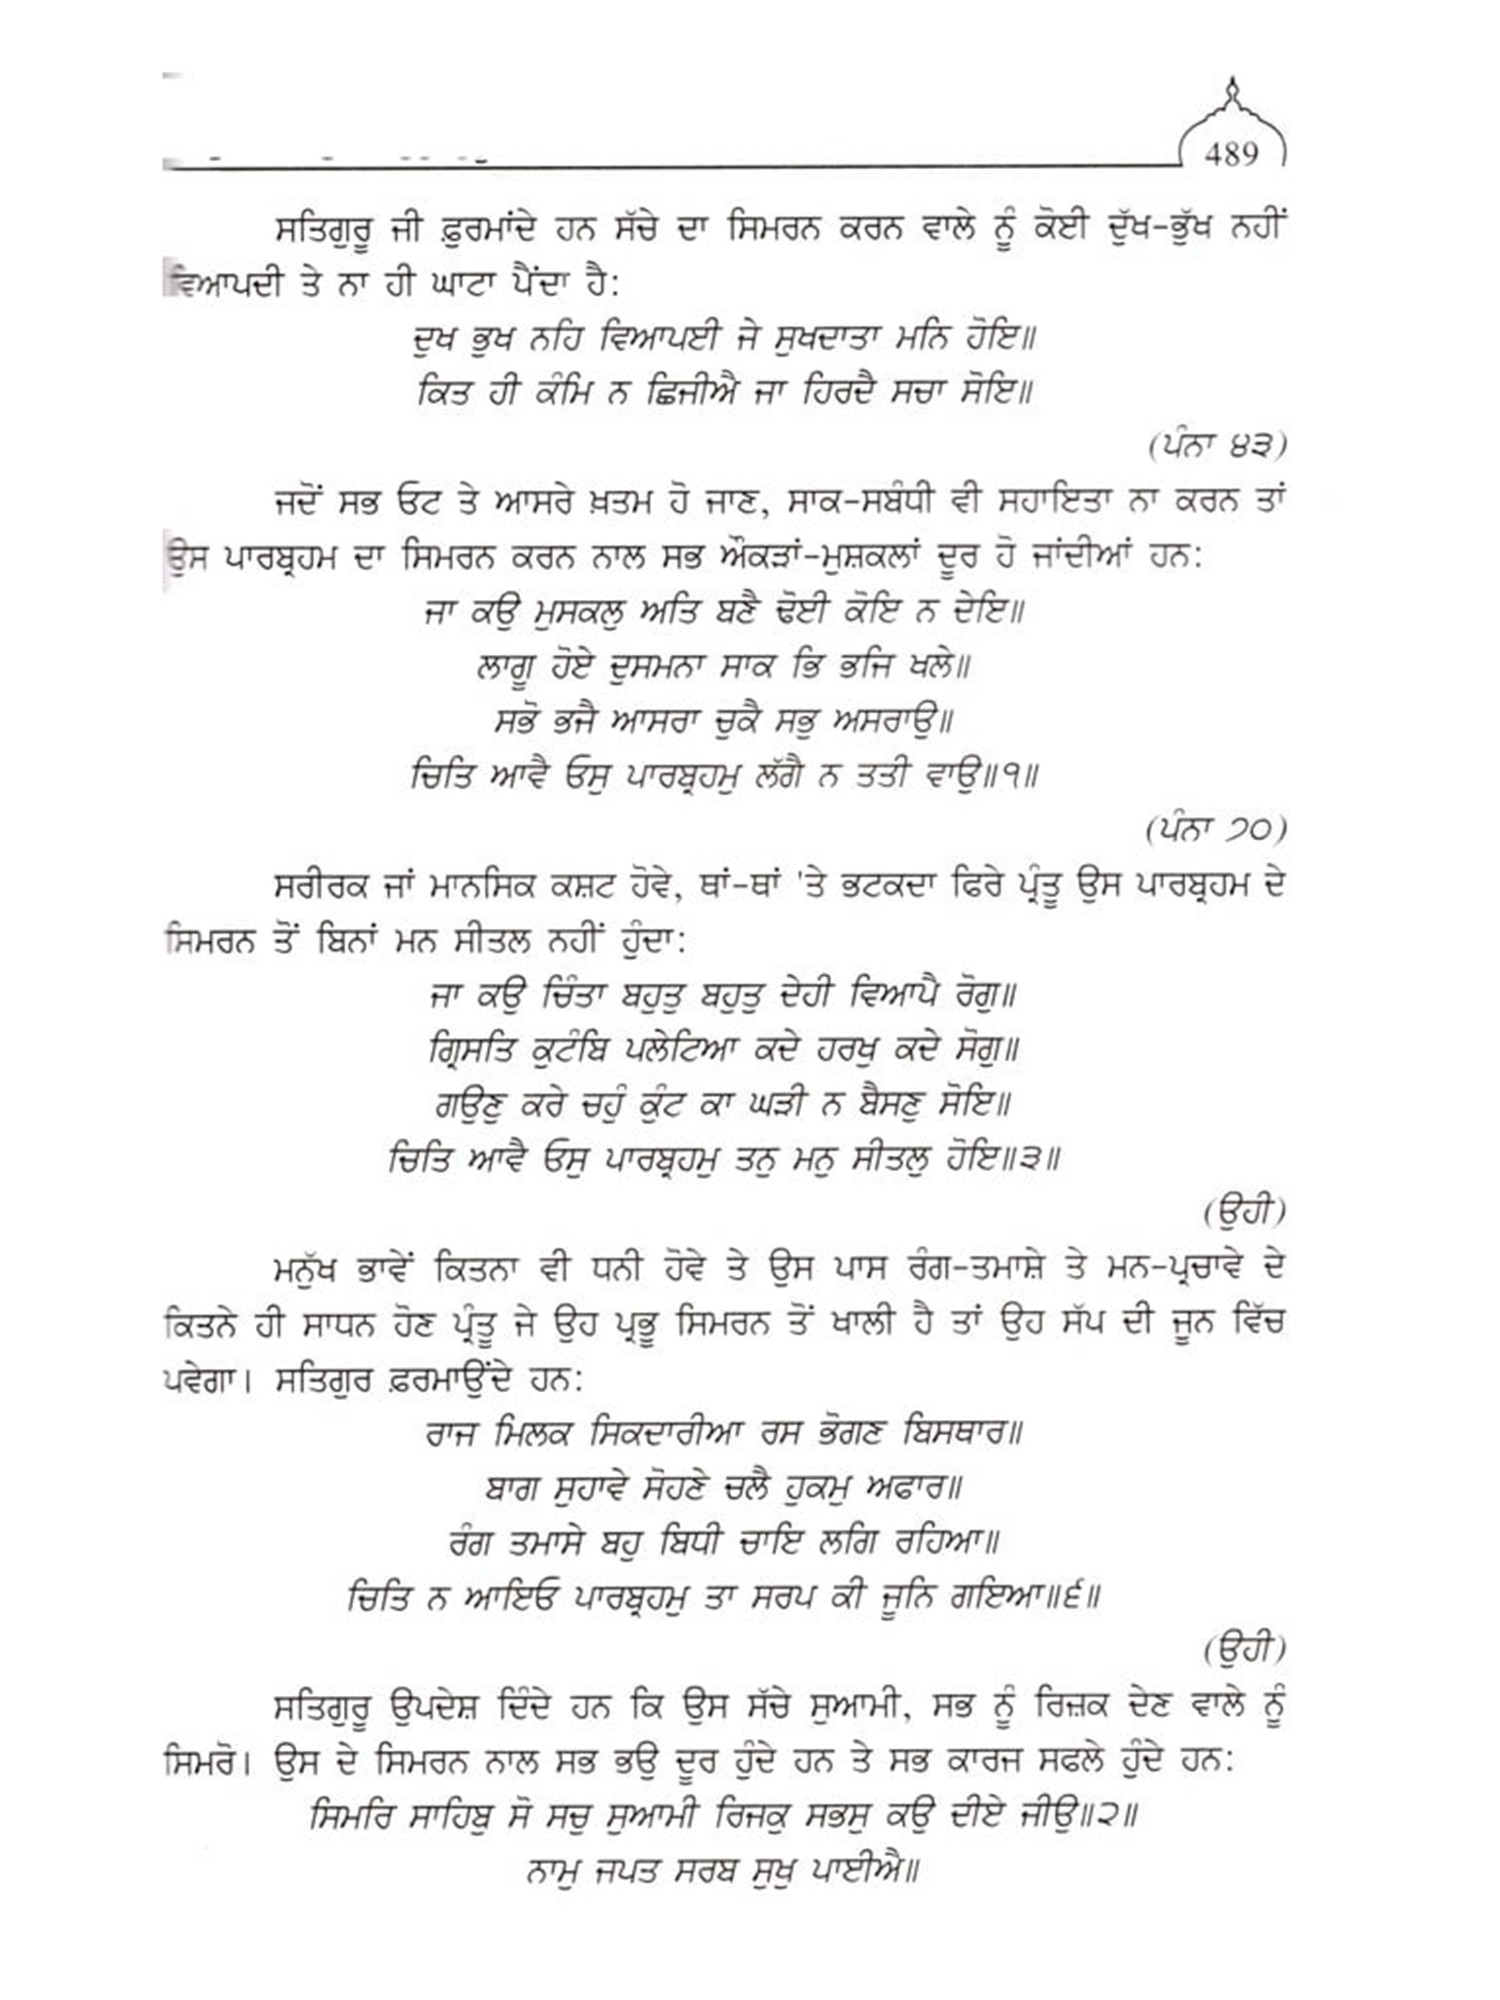 489
ਸਤਿਗੁਰੂ ਜੀ ਫ਼ੁਰਮਾਂਦੇ ਹਨ ਸੱਚੇ ਦਾ ਸਿਮਰਨ ਕਰਨ ਵਾਲੇ ਨੂੰ ਕੋਈ ਦੁੱਖ-ਭੁੱਖ ਨਹੀਂ
ਵਿਆਪਦੀ ਤੇ ਨਾ ਹੀ ਘਾਟਾ ਪੈਂਦਾ ਹੈ:
ਦੁਖ ਭੁਖ ਨਹਿ ਵਿਆਪਈ ਜੇ ਸੁਖਦਾਤਾ ਮਨਿ ਹੋਇ॥
ਕਿਤ ਹੀ ਕੰਮਿ ਨ ਛਿਜੀਐ ਜਾ ਹਿਰਦੈ ਸਚਾ ਸੋਇ॥
(ਪੰਨਾ ੪੩)
ਜਦੋਂ ਸਭ ਓਟ ਤੇ ਆਸਰੇ ਖ਼ਤਮ ਹੋ ਜਾਣ, ਸਾਕ-ਸਬੰਧੀ ਵੀ ਸਹਾਇਤਾ ਨਾ ਕਰਨ ਤਾਂ
ਉਸ ਪਾਰਬ੍ਰਹਮ ਦਾ ਸਿਮਰਨ ਕਰਨ ਨਾਲ ਸਭ ਔਕੜਾਂ-ਮੁਸ਼ਕਲਾਂ ਦੂਰ ਹੋ ਜਾਂਦੀਆਂ ਹਨ:
ਜਾ ਕਉ ਮੁਸਕਲੁ ਅਤਿ ਬਣੈ ਢੋਈ ਕੋਇ ਨ ਦੇਇ॥
ਲਾਗੂ ਹੋਏ ਦੁਸਮਨਾ ਸਾਕ ਭਿ ਭਜਿ ਖਲੇ॥
ਸਭੋ ਭਜੈ ਆਸਰਾ ਚੁਕੈ ਸਭੁ ਅਸਰਾਉ॥
ਚਿਤਿ ਆਵੈ ਓਸੁ ਪਾਰਬ੍ਰਹਮੁ ਲੱਗੈ ਨ ਤਤੀ ਵਾਉ॥੧॥
(ਪੰਨਾ ੭੦)
ਸਰੀਰਕ ਜਾਂ ਮਾਨਸਿਕ ਕਸ਼ਟ ਹੋਵੇ, ਥਾਂ-ਥਾਂ 'ਤੇ ਭਟਕਦਾ ਫਿਰੇ ਪ੍ਰੰਤੂ ਉਸ ਪਾਰਬ੍ਰਹਮ ਦੇ
ਸਿਮਰਨ ਤੋਂ ਬਿਨਾਂ ਮਨ ਸੀਤਲ ਨਹੀਂ ਹੁੰਦਾ:
ਜਾ ਕਉ ਚਿੰਤਾ ਬਹੁਤੁ ਬਹੁਤੁ ਦੇਹੀ ਵਿਆਪੈ ਰੋਗੁ॥
ਗ੍ਰਿਸਤਿ ਕੁਟੰਬਿ ਪਲੇਟਿਆ ਕਦੇ ਹਰਖੁ ਕਦੇ ਸੋਗੁ॥
ਗਉਣੁ ਕਰੇ ਚਹੁੰ ਕੁੰਟ ਕਾ ਘੜੀ ਨ ਬੈਸਣੁ ਸੋਇ॥
ਚਿਤਿ ਆਵੈ ਓਸੁ ਪਾਰਬ੍ਰਹਮੁ ਤਨੁ ਮਨੁ ਸੀਤਲੁ ਹੋਇ॥੩॥
(ਉਹੀ)
ਮਨੁੱਖ ਭਾਵੇਂ ਕਿਤਨਾ ਵੀ ਧਨੀ ਹੋਵੇ ਤੇ ਉਸ ਪਾਸ ਰੰਗ-ਤਮਾਸ਼ੇ ਤੇ ਮਨ-ਪ੍ਰਚਾਵੇ ਦੇ
ਕਿਤਨੇ ਹੀ ਸਾਧਨ ਹੋਣ ਪ੍ਰੰਤੂ ਜੇ ਉਹ ਪ੍ਰਭੂ ਸਿਮਰਨ ਤੋਂ ਖਾਲੀ ਹੈ ਤਾਂ ਉਹ ਸੱਪ ਦੀ ਜੂਨ ਵਿੱਚ
ਪਵੇਗਾ। ਸਤਿਗੁਰ ਫ਼ਰਮਾਉਂਦੇ ਹਨ:
ਰਾਜ ਮਿਲਕ ਸਿਕਦਾਰੀਆ ਰਸ ਭੋਗਣ ਬਿਸਥਾਰ॥
ਬਾਗ ਸੁਹਾਵੇ ਸੋਹਣੇ ਚਲੈ ਹੁਕਮੁ ਅਫਾਰ॥
ਰੰਗ ਤਮਾਸੇ ਬਹੁ ਬਿਧੀ ਚਾਇ ਲਗਿ ਰਹਿਆ॥
ਚਿਤਿ ਨ ਆਇਓ ਪਾਰਬ੍ਰਹਮੁ ਤਾ ਸਰਪ ਕੀ ਜੂਨਿ ਗਇਆ॥੬॥
(ਉਹੀ)
ਸਤਿਗੁਰੂ ਉਪਦੇਸ਼ ਦਿੰਦੇ ਹਨ ਕਿ ਉਸ ਸੱਚੇ ਸੁਆਮੀ, ਸਭ ਨੂੰ ਰਿਜ਼ਕ ਦੇਣ ਵਾਲੇ ਨੂੰ
ਸਿਮਰੋ। ਉਸ ਦੇ ਸਿਮਰਨ ਨਾਲ ਸਭ ਭਉ ਦੂਰ ਹੁੰਦੇ ਹਨ ਤੇ ਸਭ ਕਾਰਜ ਸਫਲੇ ਹੁੰਦੇ ਹਨ:
ਸਿਮਰਿ ਸਾਹਿਬੁ ਸੋ ਸਚੁ ਸੁਆਮੀ ਰਿਜਕੁ ਸਭਸੁ ਕਉ ਦੀਏ ਜੀਉ॥੨॥
ਨਾਮੁ ਜਪਤ ਸਰਬ ਸੁਖੁ ਪਾਈਐ॥